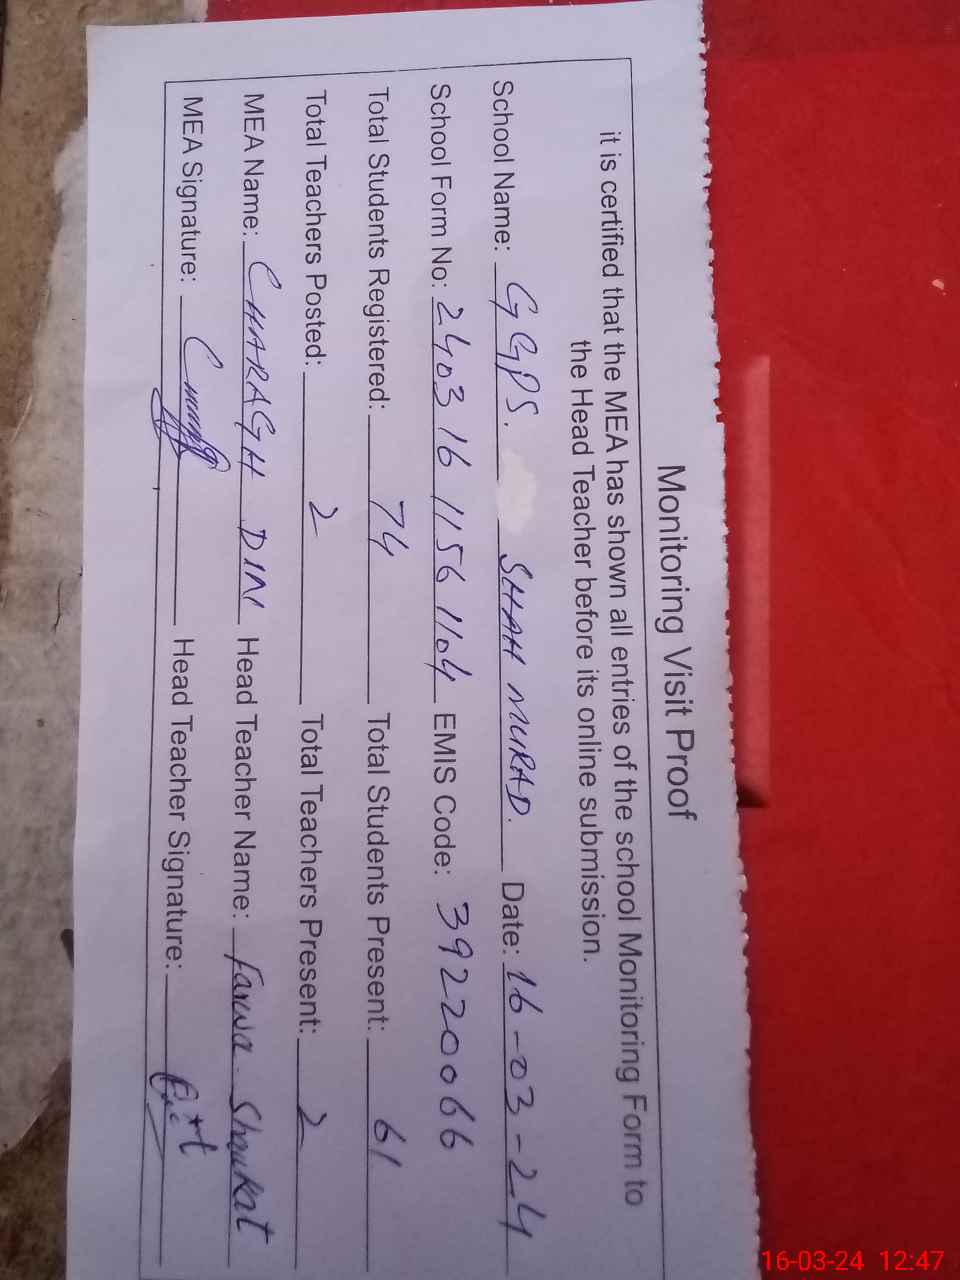 Monitoring Visit Proof
it is certified that the MEA has shown all entries of the school Monitoring Form to
the Head Teacher before its online submission.
School Name: GGPS. SHAH MURAD. Date: 16-03-24
School Form No: 240316 1156 1104 EMIS Code: 39220066
Total Students Registered: 74 Total Students Present: 61
Total Teachers Posted: 2 Total Teachers Present: 2
MEA Name: CHARAGH DIN Head Teacher Name: Farwa Shoukat
MEA Signature: Head Teacher Signature:
16-03-24 12:47